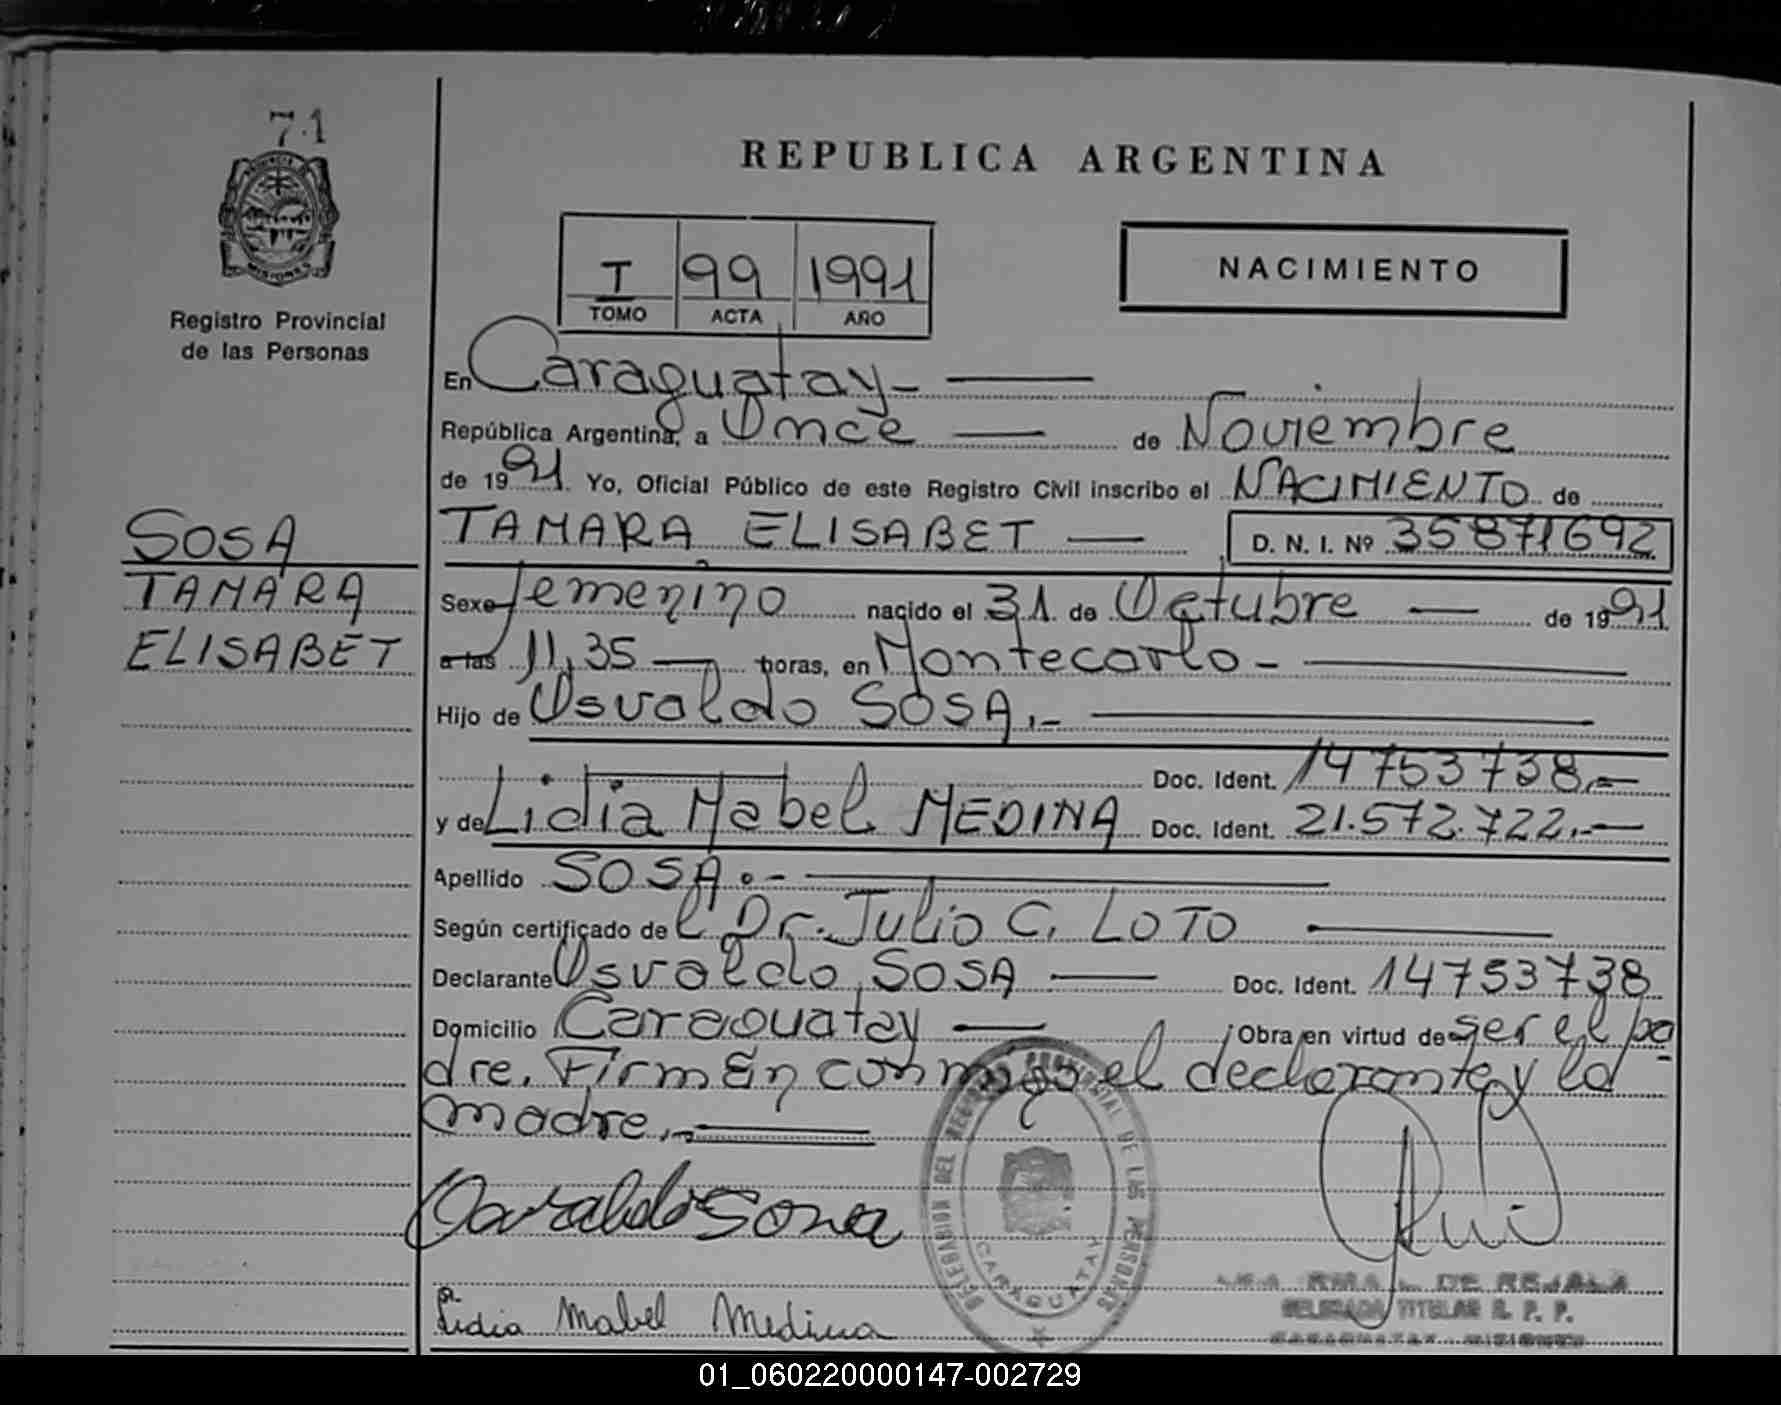 71
REPUBLICA ARGENTINA
MISIONES
Registro Provincial
de las Personas
I 99 1991
TOMO ACTA AÑO
NACIMIENTO
En Caraguatay-
República Argentina, a Once de Noviembre
de 1991. Yo, Oficial Público de este Registro Civil inscribo el NACIMIENTO de
SOSA
TAMARA
ELISABET
TAMARA ELISABET D. N. I. Nº 35871692
Sexo femenino nacido el 31 de Octubre de 1991
a las 11,35 horas, en Montecarlo-
Hijo de Osvaldo SOSA.-
Doc. Ident. 14753738.-
y de Lidia Mabel MEDINA Doc. Ident. 21.572.722.-
Apellido SOSA.-
Según certificado del Dr. Julio C. LOTO
Declarante Osvaldo SOSA Doc. Ident. 14753738
Domicilio Caraguatay Obra en virtud de ser el pa
dre. Firman conmigo el declarante y la
madre.-
Osvaldo Sosa
DELEGACION DEL REGISTRO PROVINCIAL DE LAS PERSONAS
CARAGUATAY
Lidia Mabel Medina
DELEGADA TITULAR R. P. P.
CARAGUATAY - MISIONES
01_060220000147-002729